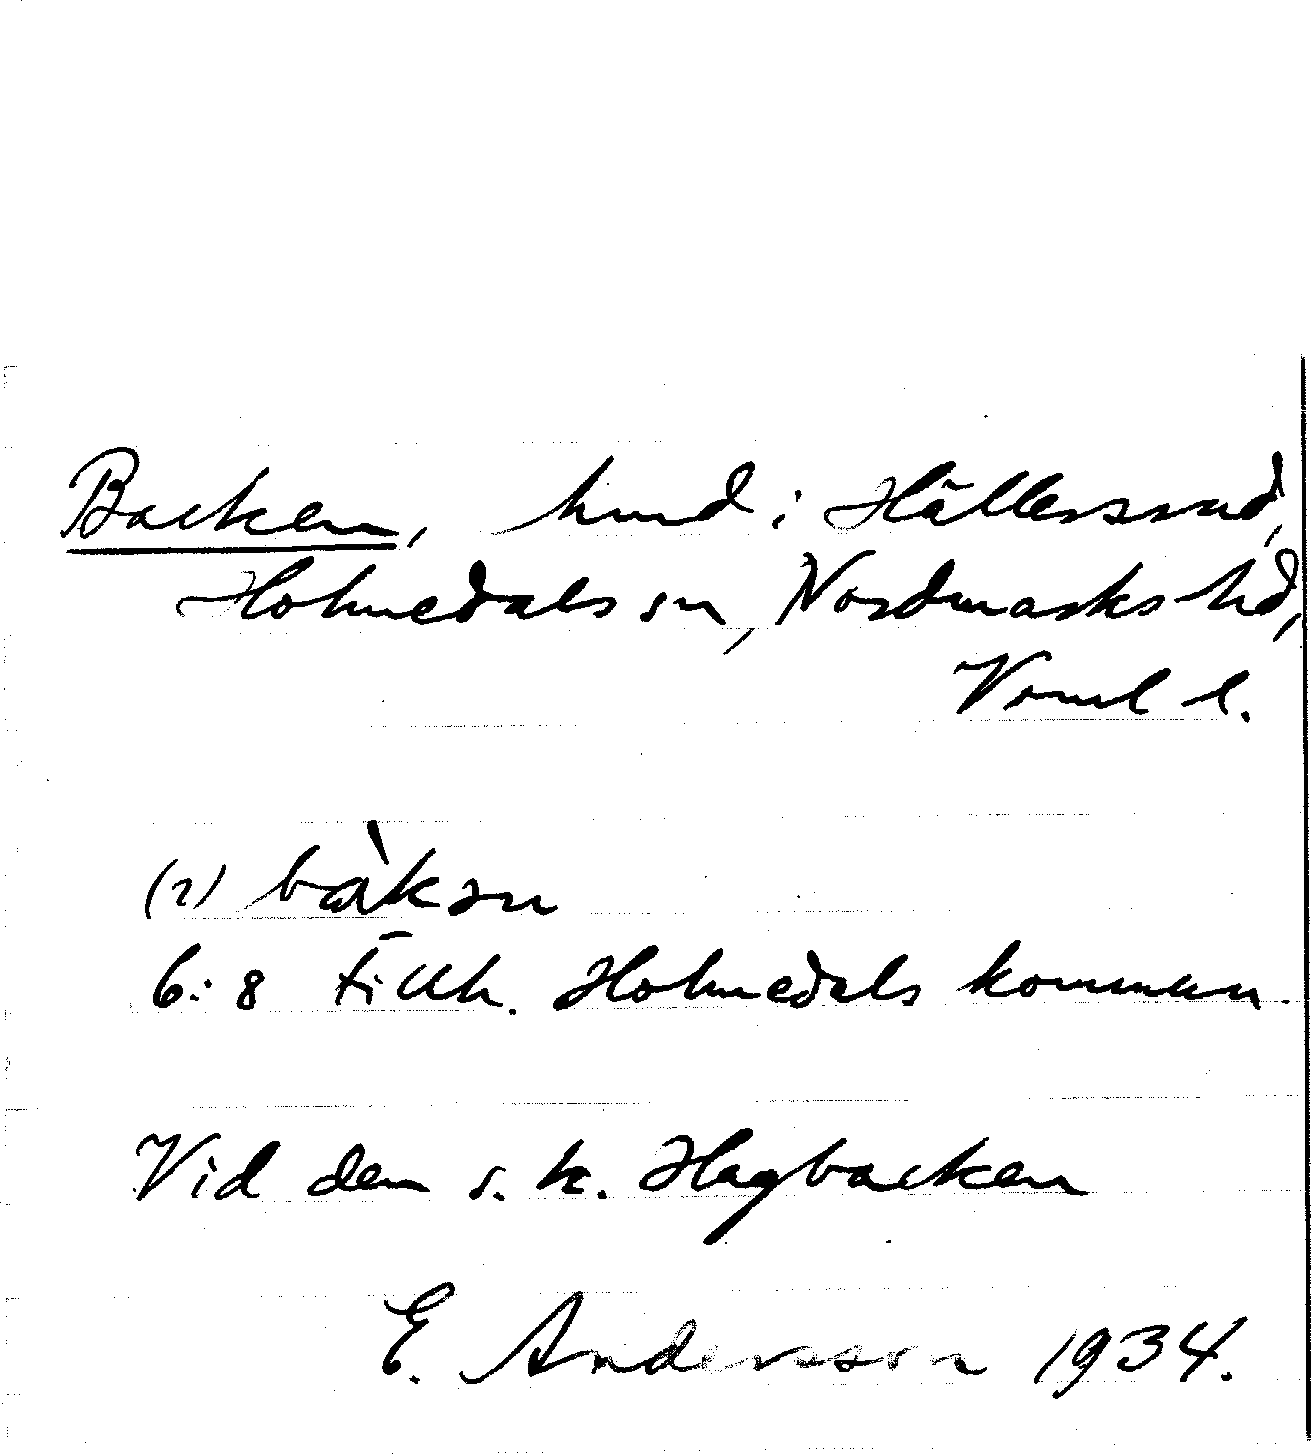 Backen, hmd i Hällersrud,
Holmedals sn, Nordmarks hd,
Vrml l.
(2) bàkən
6:8 tillh. Holmedals kommun.
Vid den s.k. Hagbacken
E. Andersson 1934.